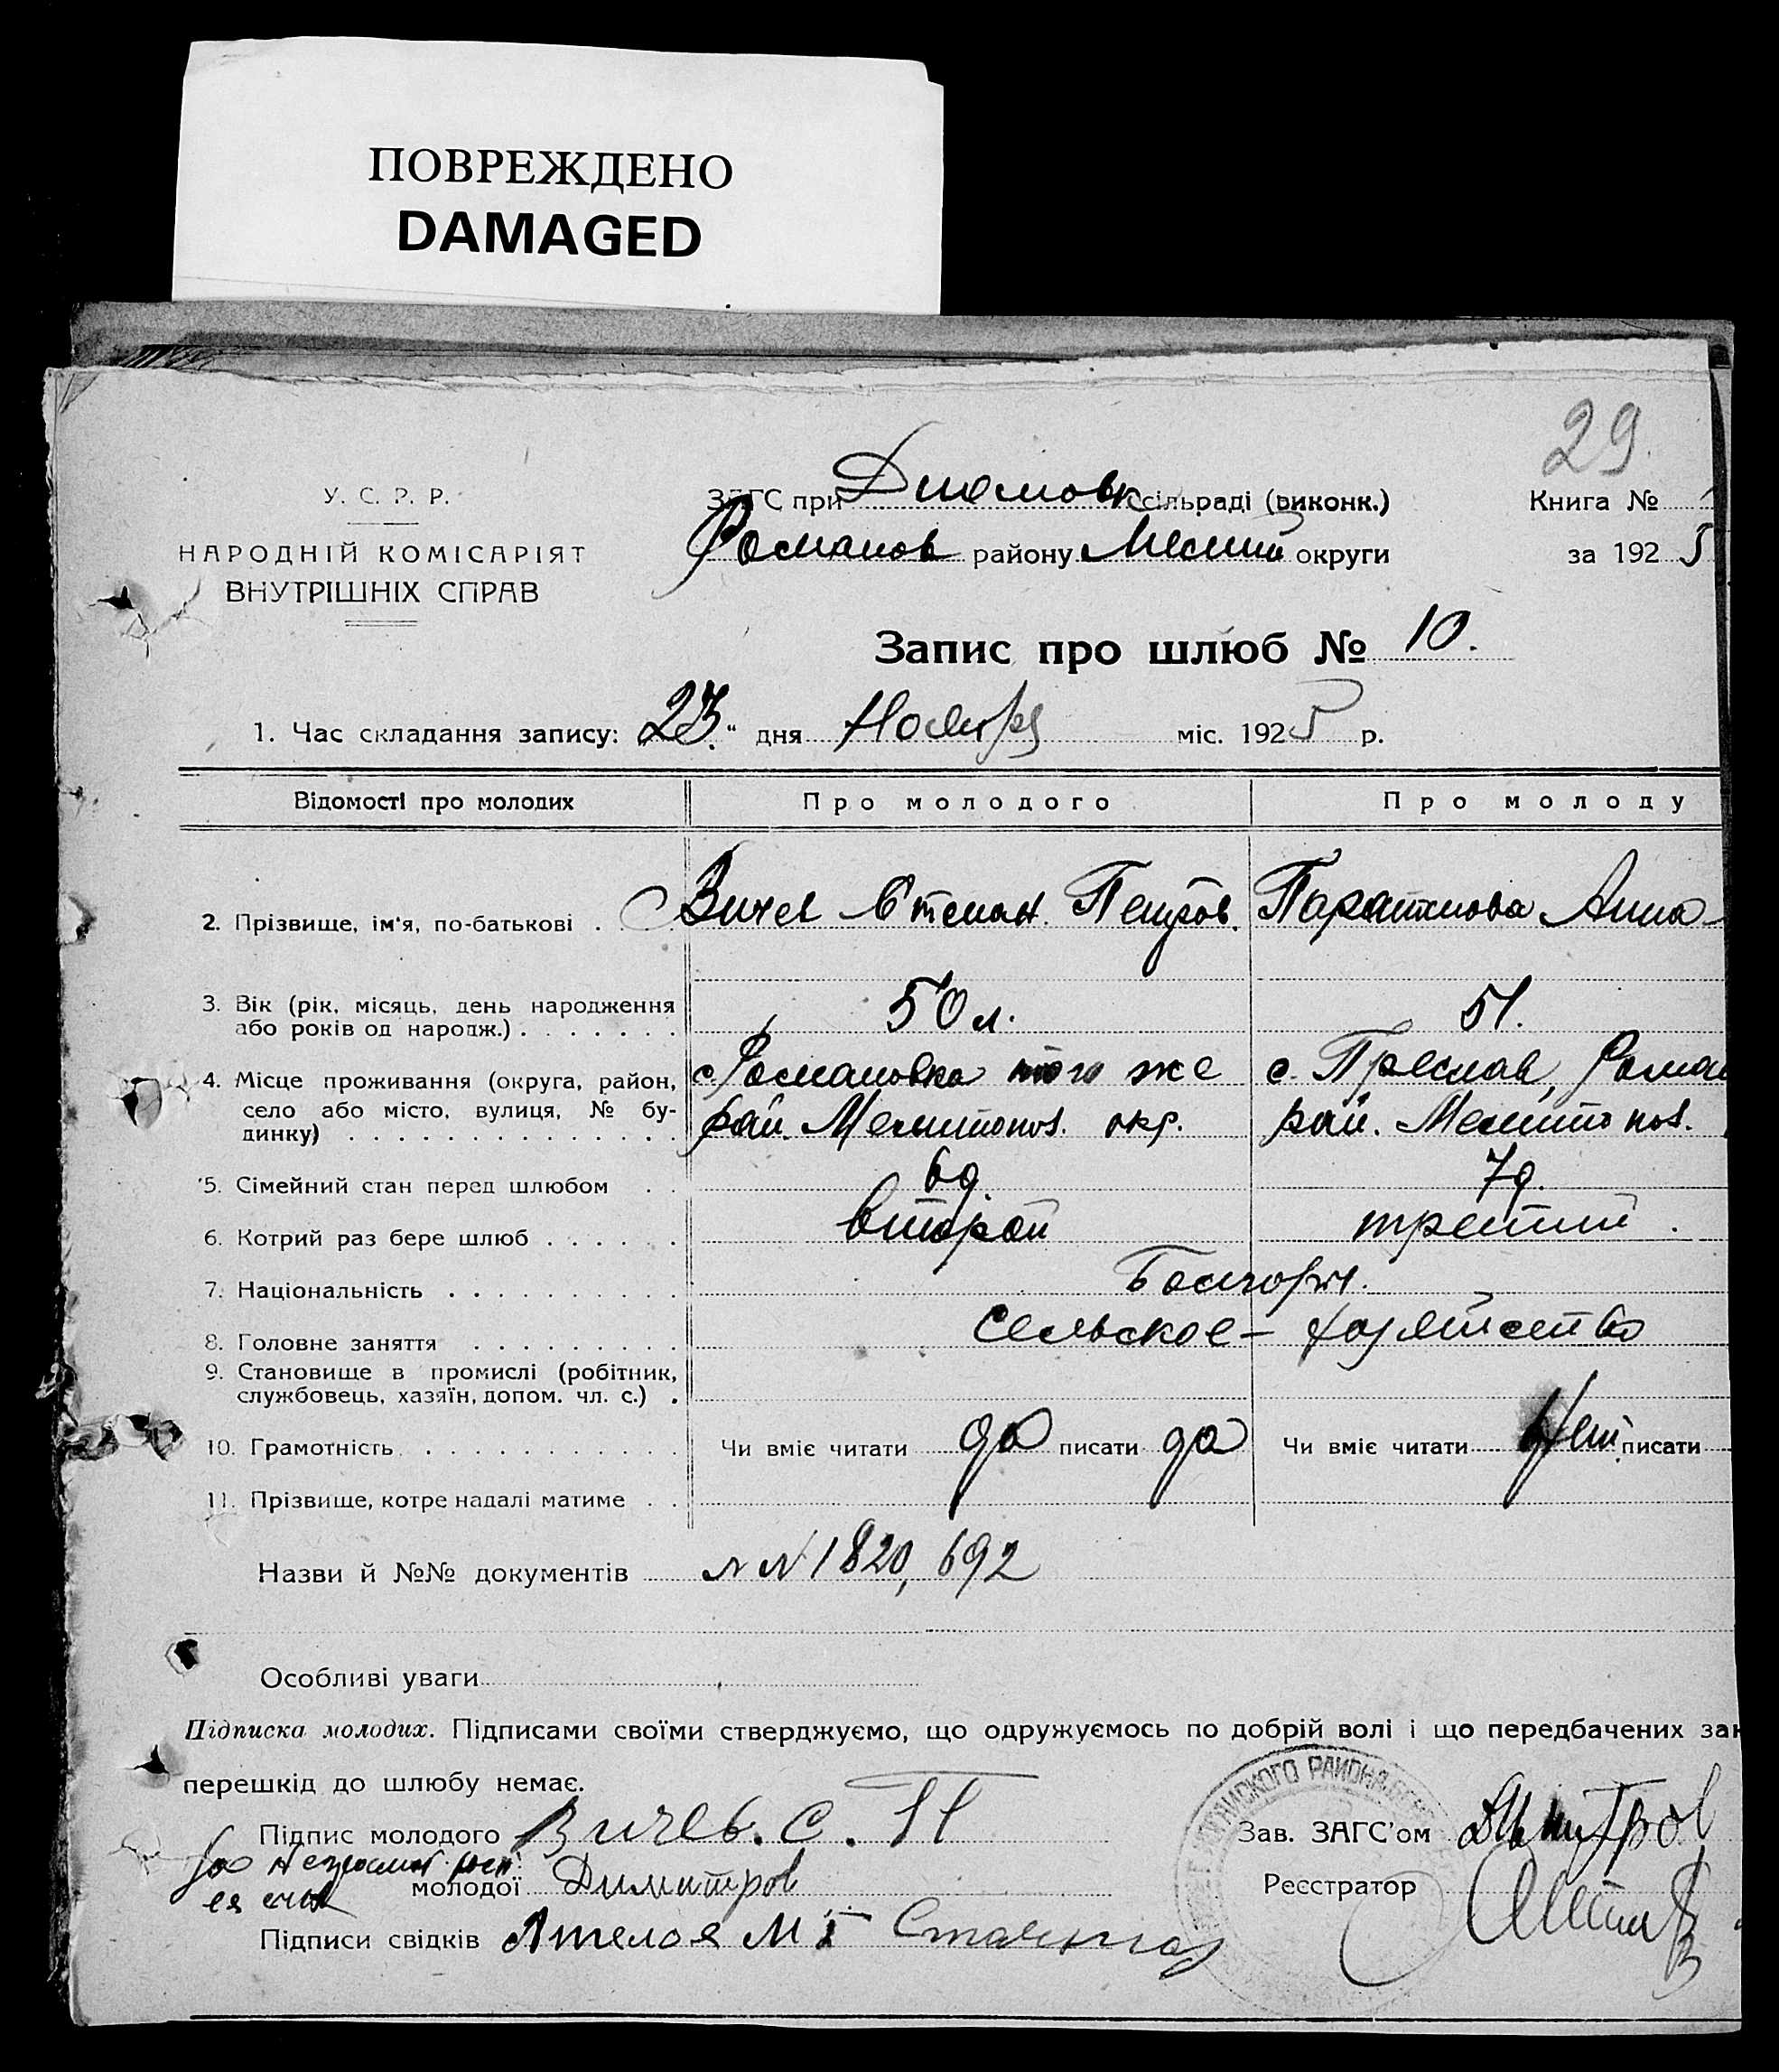 ПОВРЕЖДЕНО
DAMAGED
29
У. С. Р. Р.
НАРОДНІЙ КОМІСАРІЯТ
ВНУТРІШНІХ СПРАВ
ЗАГС при сільраді (виконк.)
Романов району Мелит округи
Книга №
за 1925
Запис про шлюб № 10.
1. Час складання запису: „23“ дня Ноября міс. 1925 р.
Відомості про молодих Про молодого Про молоду
2. Прізвище, ім'я, по-батькові . . . Вичев Степан. Петров. Анна
3. Вік (рік, місяць, день народження
або років од народж.) . . . . . . . 50 л. 51.
4. Місце проживання (округа, район,
село або місто, вулиця, № бу-
динку) . . . . . . . . . . . . . . .
с. Романовка того же с. Преслав, Роман
рай. Мелитопол. окр. рай. Мелитопол.
5. Сімейний стан перед шлюбом . . вд.
6. Котрий раз бере шлюб . . . . . . второй третий.
7. Національність . . . . . . . . . . Болгоры.
8. Головне заняття . . . . . . . . . сельское - хозяйство
9. Становище в промислі (робітник,
службовець, хазяїн, допом. чл. с.) .
10. Грамотність . . . . . . . . . . . Чи вміє читати да писати да Чи вміє читати Нет писати
11. Прізвище, котре надалі матиме . .
Назви й №№ документів NN 1820, 692
Особливі уваги
Підписка молодих. Підписами своїми стверджуємо, що одружуємось по добрій волі і що передбачених зак
перешкід до шлюбу немає.
Підпис молодого Вичев. С. П
за неграмот. росп.
молодої Димитров
Підписи свідків
Зав. ЗАГС'ом Димитров
Реєстратор